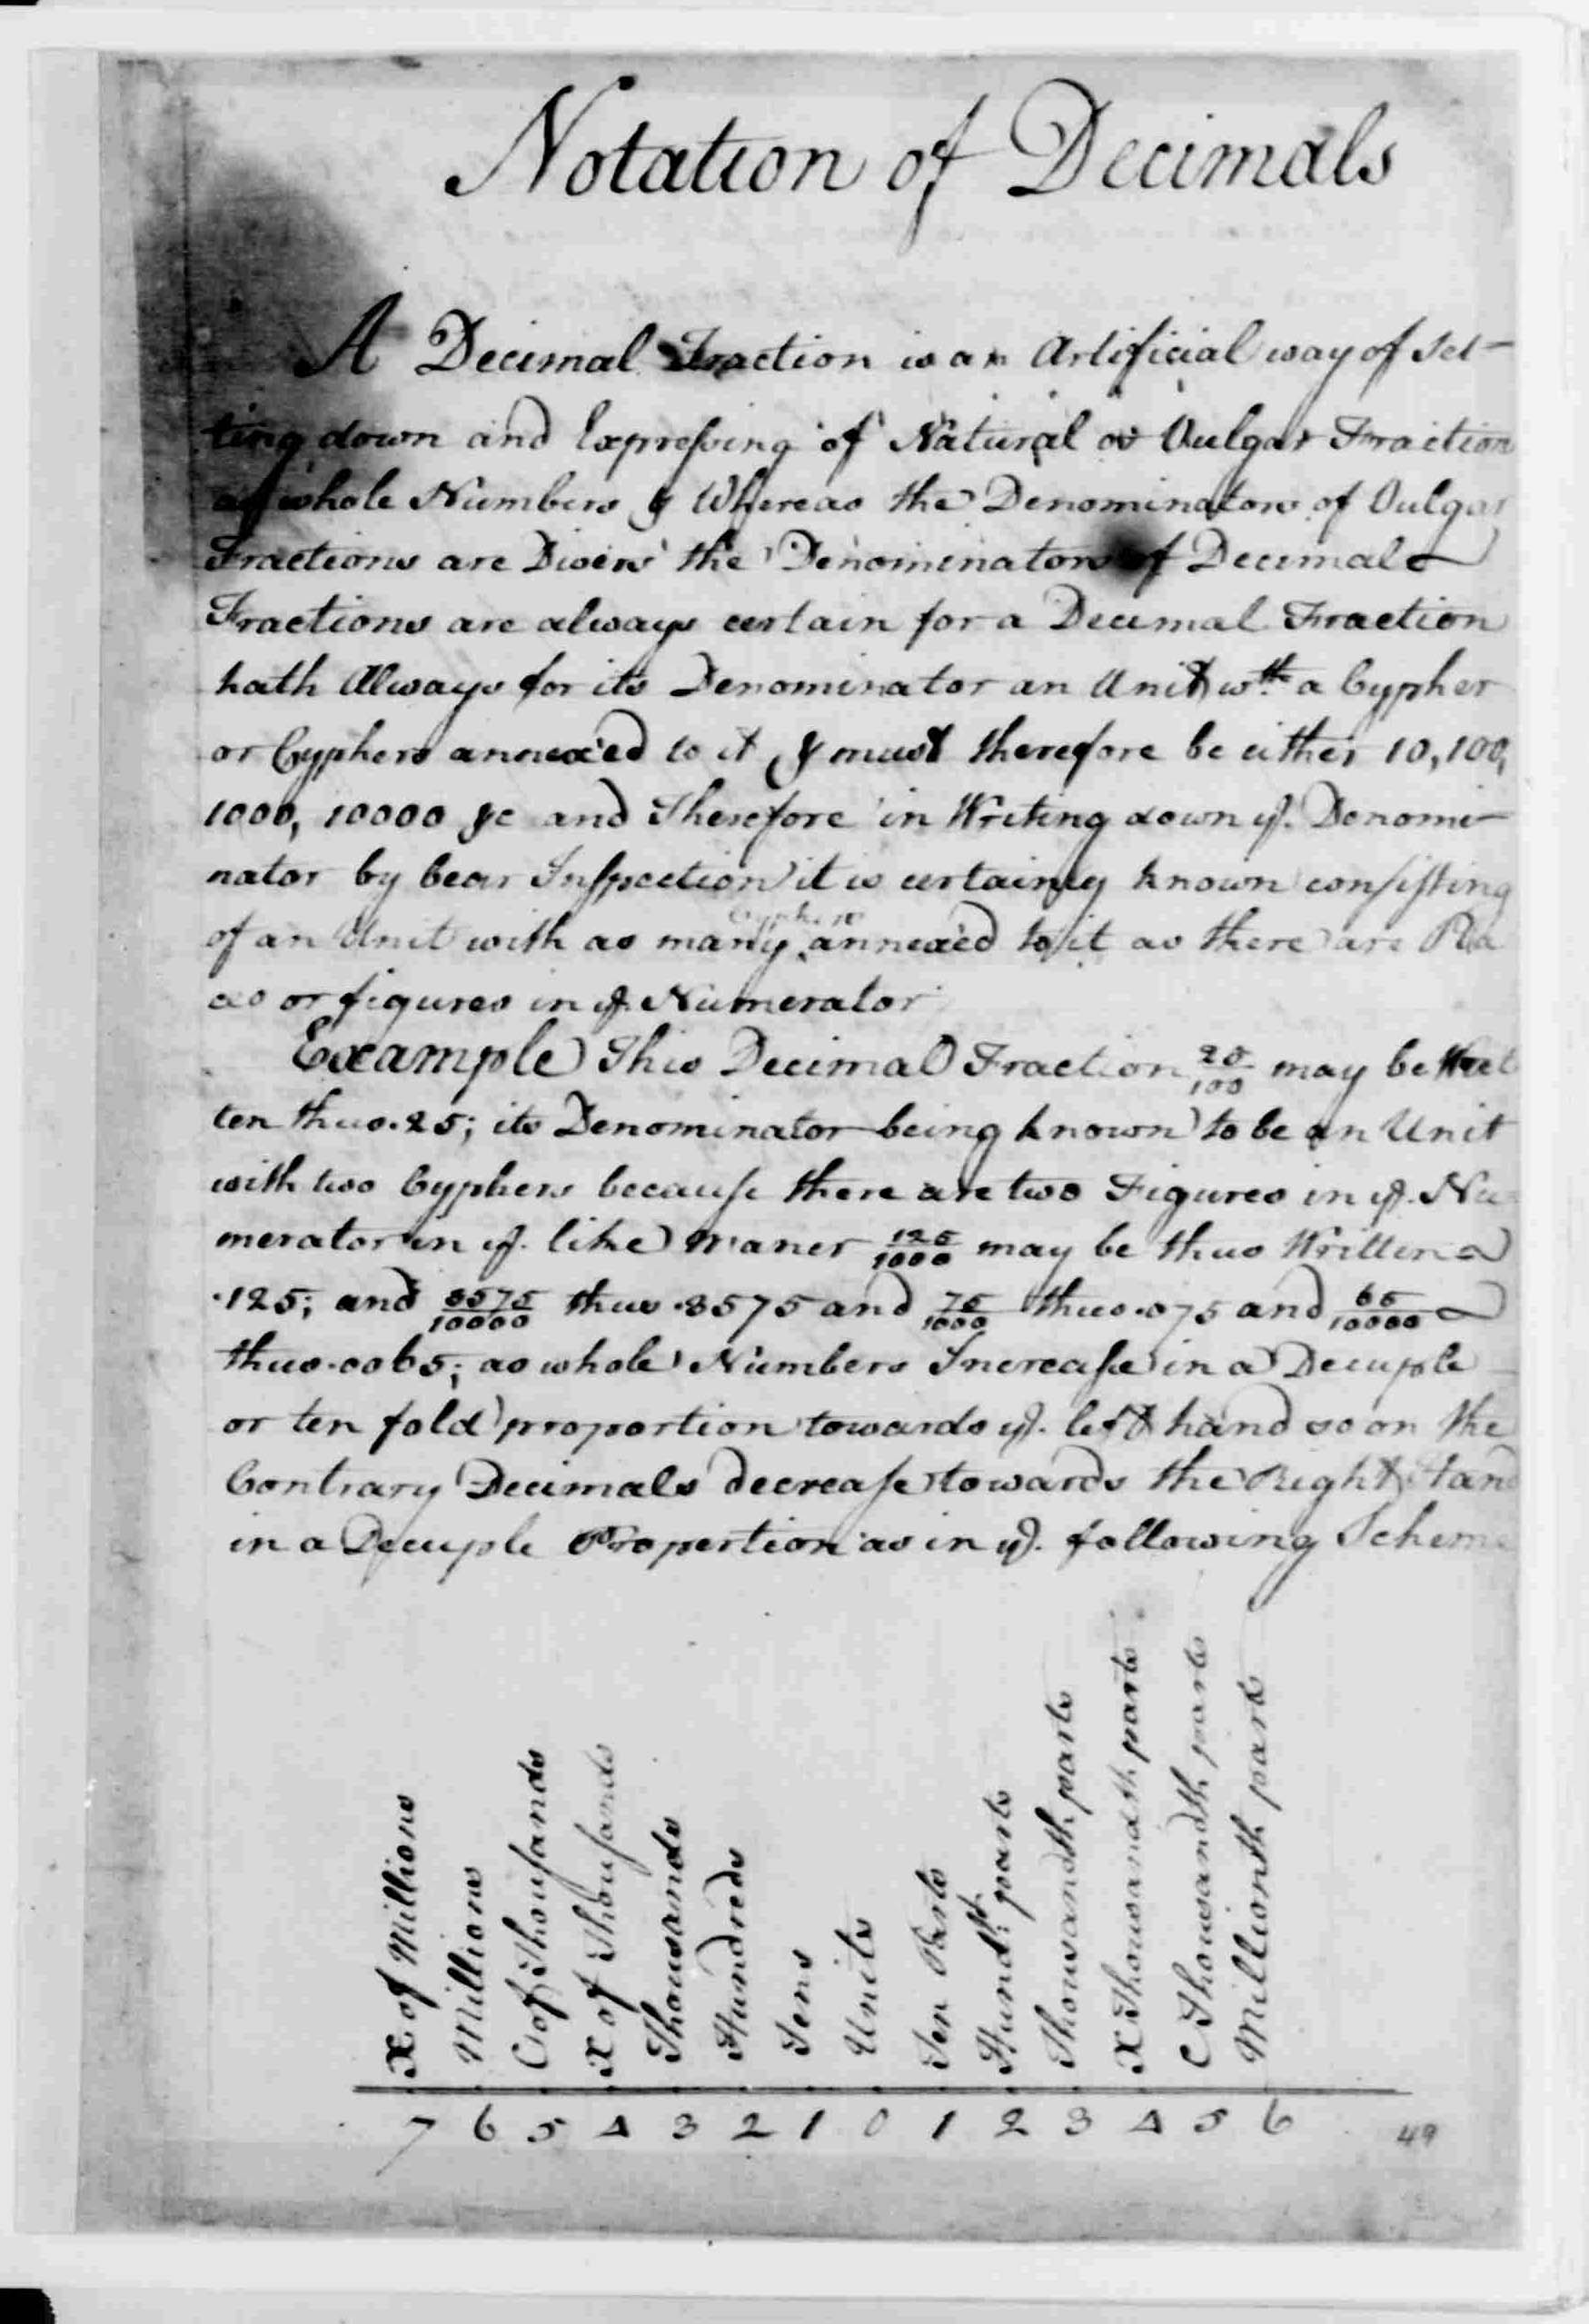 Notation of Decimals
A Decimal Fraction is an Artificial way of Set-
ting down and Expressing of Natural or Vulgar Fraction
as whole Numbers & Whereas the Denominators of Vulgar
Fractions are Divers the Denominators of Decimal
Fractions are always certain for a Decimal Fraction
hath Always for its Denominator an Unit wth a Cypher
or Cyphers annexed to it & must therefore be either 10, 100,
1000, 10000 &c and Therefore in Writing down ye. Denomi-
nator by bear Inspection it is certainly known consisting
of an Unit with as many Cyphers annexed to it as there are Pla
ces or figures in ye. Numerator
Example This Decimal Fraction 25/100 may be Writ
ten thus .25; its Denominator being known to be an Unit
with two Cyphers because there are two Figures in ye. Nu
merator in ye. like maner 125/1000 may be thus Written
.125; and 3575/10000 thus .3575 and 75/1000 thus .075 and 65/10000
thus .0065; as whole Numbers Increase in a Decuple
or ten fold proportion towards ye. left hand so on the
Contrary Decimals decrease towards the Right Hand
in a Decuple Proportion as in ye. following Scheme
X of Millions
Millions
C of Thousands
X of Thousands
Thousands
Hundreds
Tens
Units
Ten Parts
Hundth. parts
Thousandth parts
X Thousandth parts
C Thousandth parts
Millionth parts
7 6 5 4 3 2 1 0 1 2 3 4 5 6
49